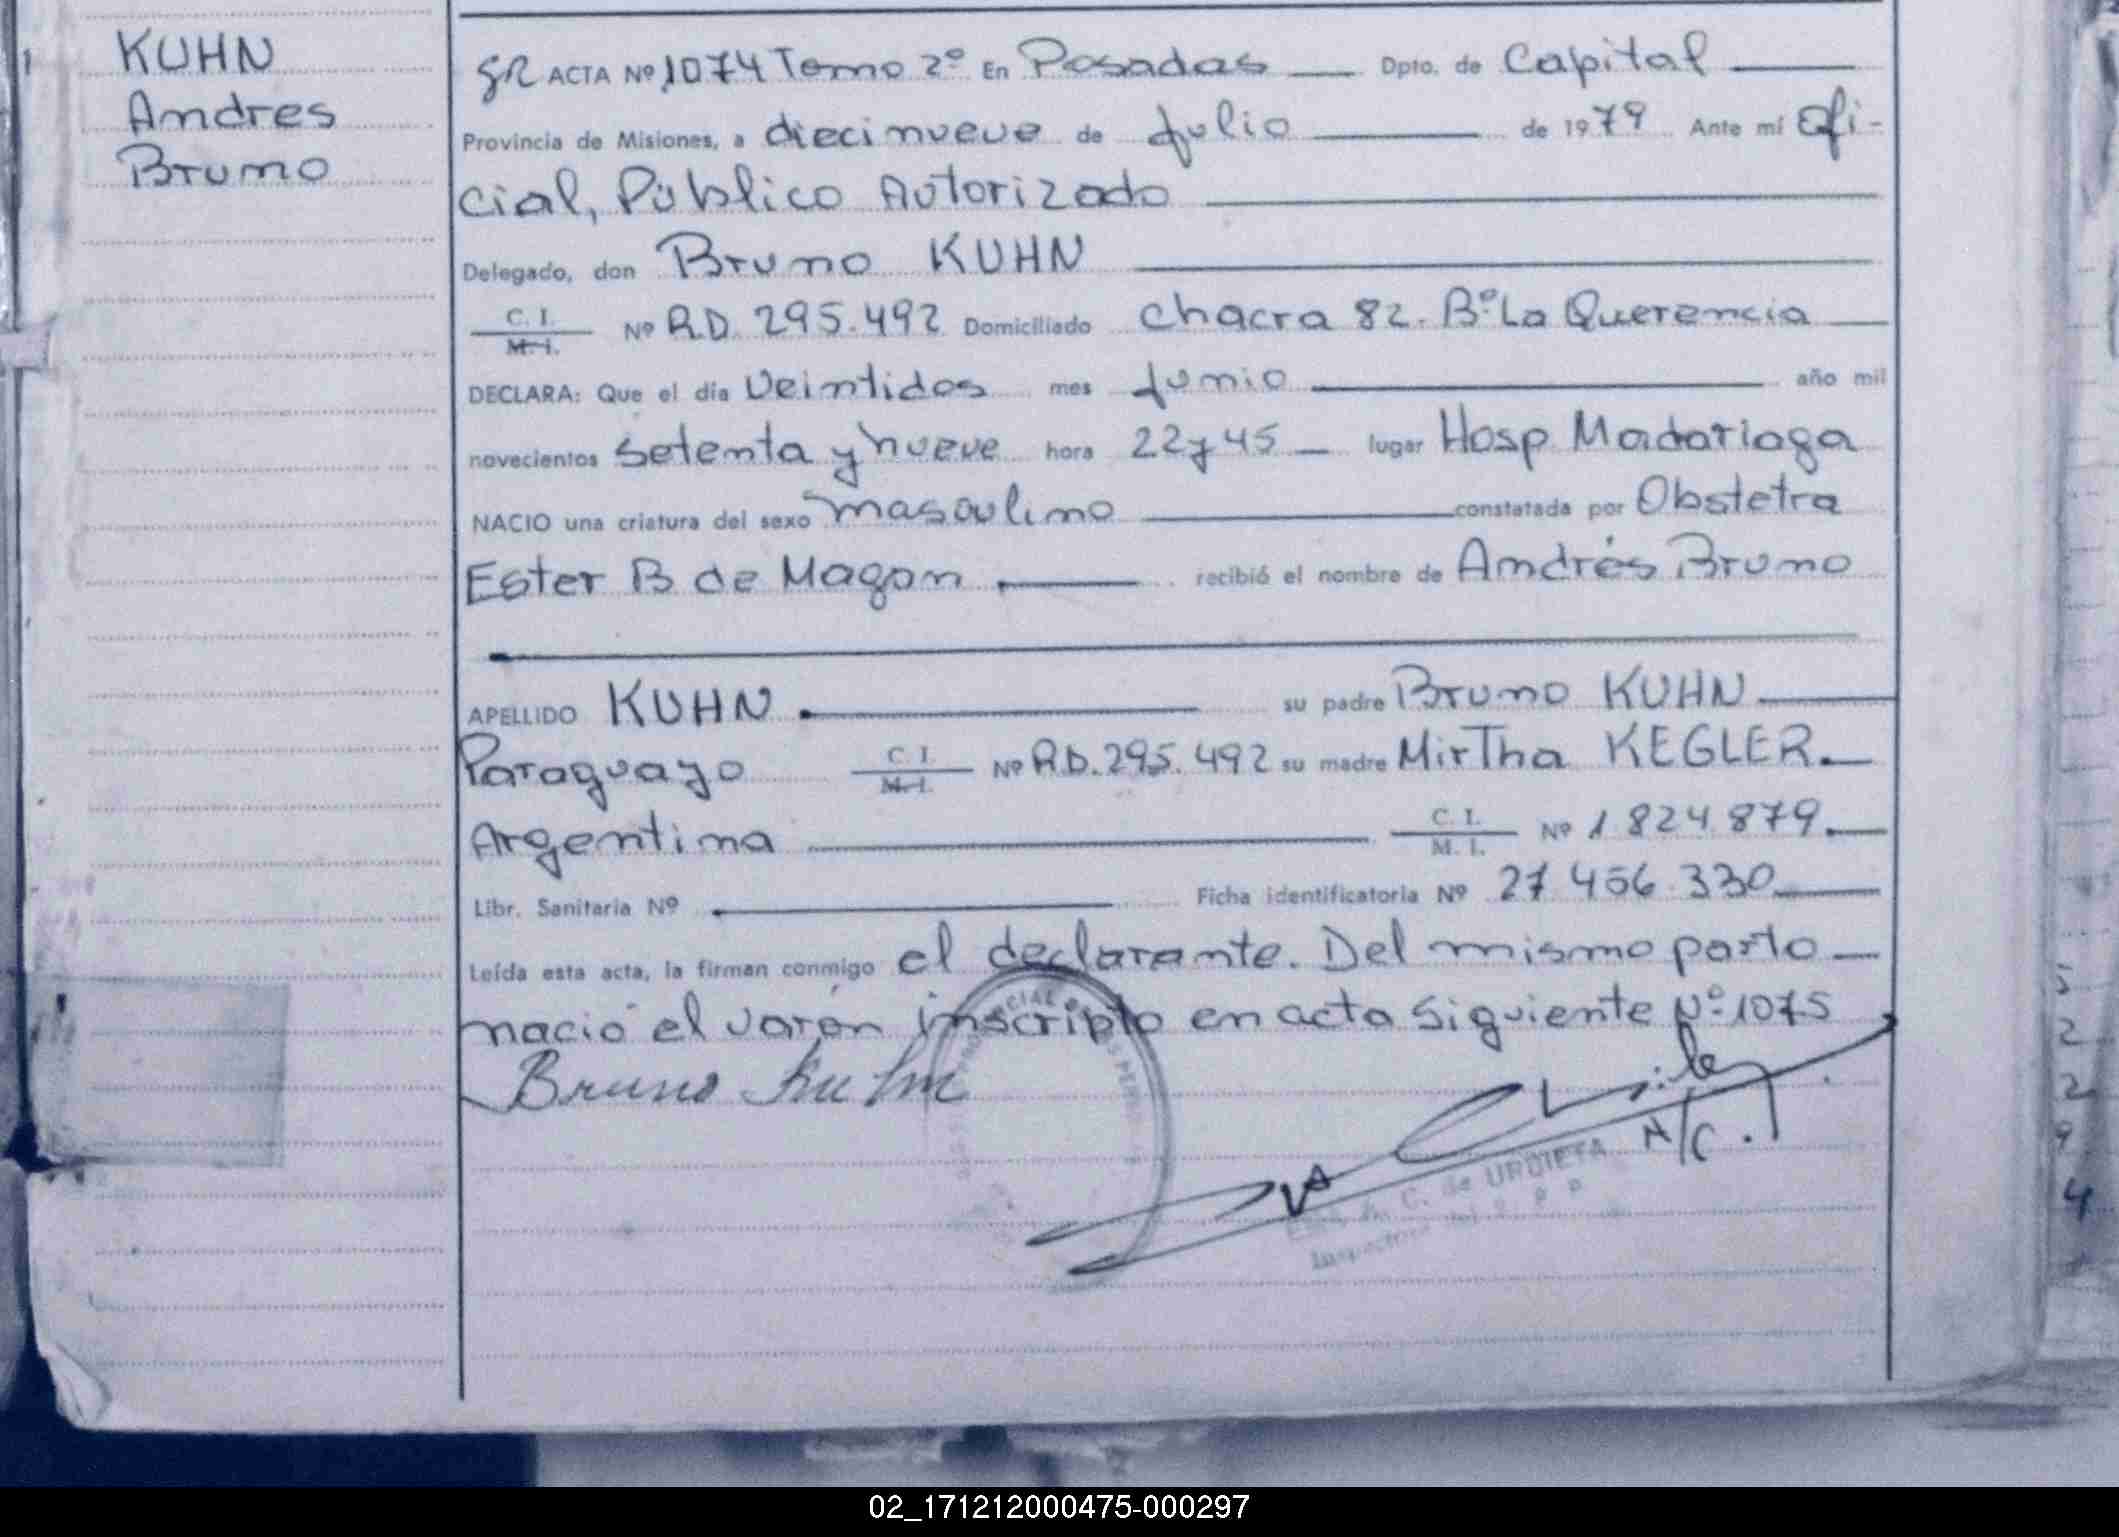 KUHN
Andres
Bruno
ACTA Nº 1074 Tomo 2º En Posadas Dpto. de Capital
Provincia de Misiones, a diecinueve de Julio de 1979 Ante mí Ofi-
cial, Público Autorizado
Delegado, don Bruno KUHN
C. I.
M. I.
Nº R.D. 295.492 Domiciliado Chacra 82. Bº La Querencia
DECLARA: Que el día Veintidos mes Junio año mil
novecientos setenta y nueve hora 22y45 lugar Hosp Madariaga
NACIO una criatura del sexo masculino constatada por Obstetra
Ester B de Magan recibió el nombre de Andrés Bruno
APELLIDO KUHN su padre Bruno KUHN
Paraguayo C. I. M. I. Nº R.D. 295.492 su madre Mirtha KEGLER
Argentina C. I. M. I. Nº 1 824 879
Libr. Sanitaria Nº Ficha identificatoria Nº 27 456 330
Leída esta acta, la firman conmigo el declarante. Del mismo parto
nació el varón inscripto en acta siguiente Nº 1075
Bruno Kuhn
A/C.
C. de URDIETA
02_171212000475-000297